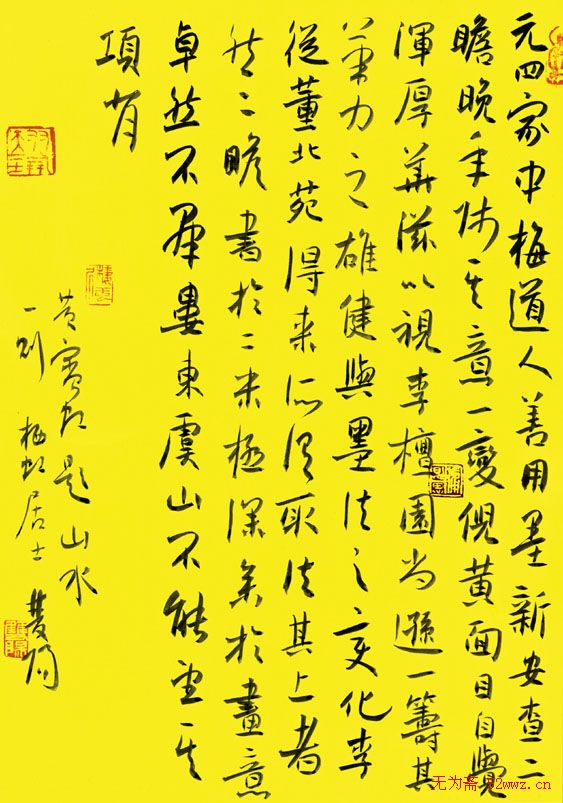 元四家中梅道人善用墨新安查二
瞻晚年師其意一變倪黃面目自覺
渾厚華滋以視李檀園尚遜一籌其
筆力之雄健與墨法之變化李
從董北苑得來所謂取法其上者
然二瞻書於二米極深於畫意
卓然不群婁東虞山不能望其
項背
黃賓虹題山水
一則 梅虹居士
无为斋 52wwz.cn